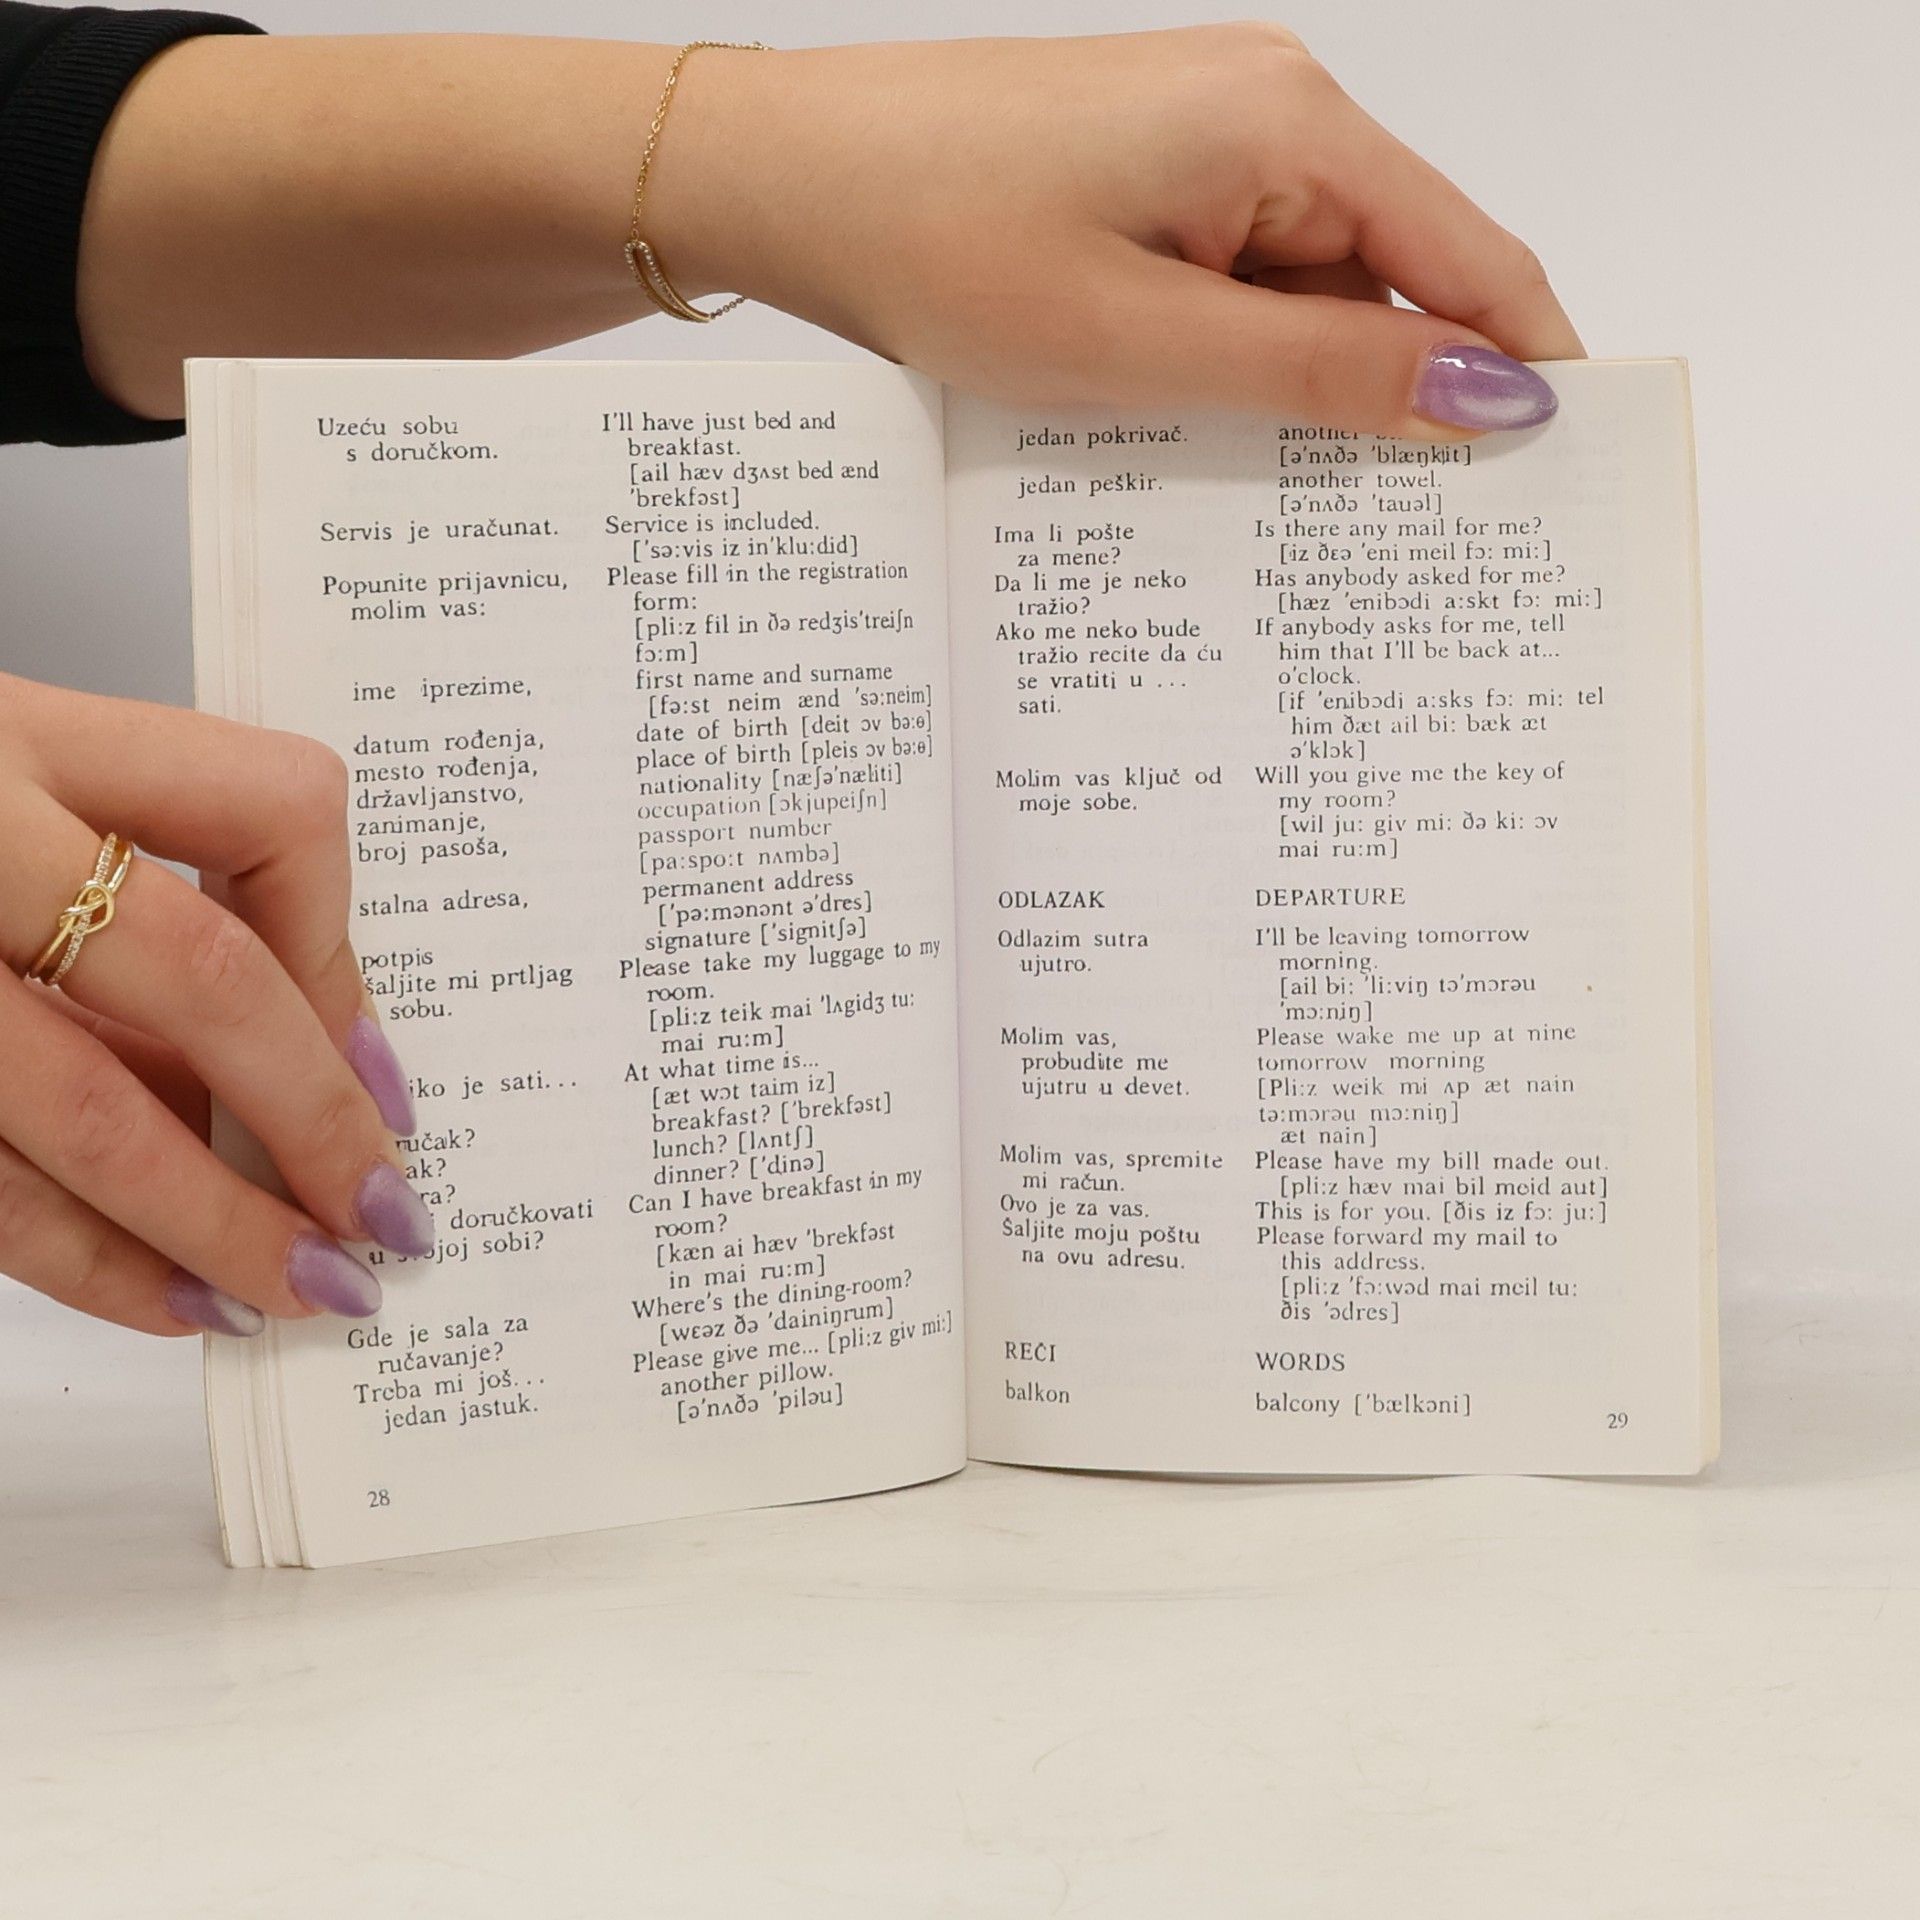 Uzeću sobu
s doručkom.
I'll have just bed and
breakfast.
[ail hæv dʒʌst bed ænd
'brekfəst]
Servis je uračunat.
Service is included.
['sə:vis iz in'klu:did]
Popunite prijavnicu,
molim vas:
Please fill in the registration
form:
[pli:z fil in ðə redʒis'treiʃn
fɔ:m]
ime iprezime,
first name and surname
[fə:st neim ænd 'sə:neim]
datum rođenja,
date of birth [deit ɔv bə:θ]
mesto rođenja,
place of birth [pleis ɔv bə:θ]
državljanstvo,
nationality [næʃə'næliti]
zanimanje,
occupation [ɔkjupeiʃn]
broj pasoša,
passport number
[pa:spo:t nʌmbə]
stalna adresa,
permanent address
['pə:mənənt ə'dres]
potpis
signature ['signitʃə]
šaljite mi prtljag
sobu.
Please take my luggage to my
room.
[pli:z teik mai 'lʌgidʒ tu:
mai ru:m]
je sati...
At what time is...
[æt wɔt taim iz]
breakfast? ['brekfəst]
lunch? [lʌntʃ]
dinner? ['dinə]
doručkovati
sobi?
Can I have breakfast in my
room?
[kæn ai hæv 'brekfəst
in mai ru:m]
Gde je sala za
ručavanje?
Where's the dining-room?
[wɛəz ðə 'dainiŋrum]
Treba mi još...
jedan jastuk.
Please give me... [pli:z giv mi:]
another pillow.
[ə'nʌðə 'piləu]
28
jedan pokrivač.
another
[ə'nʌðə 'blæŋkit]
jedan peškir.
another towel.
[ə'nʌðə 'tauəl]
Ima li pošte
za mene?
Is there any mail for me?
[iz ðɛə 'eni meil fɔ: mi:]
Da li me je neko
tražio?
Has anybody asked for me?
[hæz 'enibɔdi a:skt fɔ: mi:]
Ako me neko bude
tražio recite da ću
se vratiti u ...
sati.
If anybody asks for me, tell
him that I'll be back at...
o'clock.
[if 'enibɔdi a:sks fɔ: mi: tel
him ðæt ail bi: bæk æt
ə'klɔk]
Molim vas ključ od
moje sobe.
Will you give me the key of
my room?
[wil ju: giv mi: ðə ki: ɔv
mai ru:m]
ODLAZAK
DEPARTURE
Odlazim sutra
ujutro.
I'll be leaving tomorrow
morning.
[ail bi: 'li:viŋ tə'mɔrəu
'mɔ:niŋ]
Molim vas,
probudite me
ujutru u devet.
Please wake me up at nine
tomorrow morning
[Pli:z weik mi ʌp æt nain
tə:mɔrəu mɔ:niŋ]
æt nain]
Molim vas, spremite
mi račun.
Please have my bill made out.
[pli:z hæv mai bil meid aut]
Ovo je za vas.
This is for you. [ðis iz fɔ: ju:]
Šaljite moju poštu
na ovu adresu.
Please forward my mail to
this address.
[pli:z 'fɔ:wəd mai meil tu:
ðis 'ədres]
REČI
WORDS
balkon
balcony ['bælkəni]
29